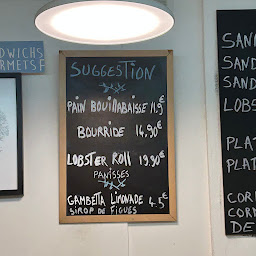 SANDWICHS
SUGGESTION
PAIN BOUILLABAISSE 11.9€
BOURRIDE 14,90€
LOBSTER ROLL 19,90€
PANISSES
GAMBETTA LIMONADE 4.5€
SIROP DE FIGUES
SAN
SAND
SAND
LOBS
PLAT
PLAT
COR
CORN
DE